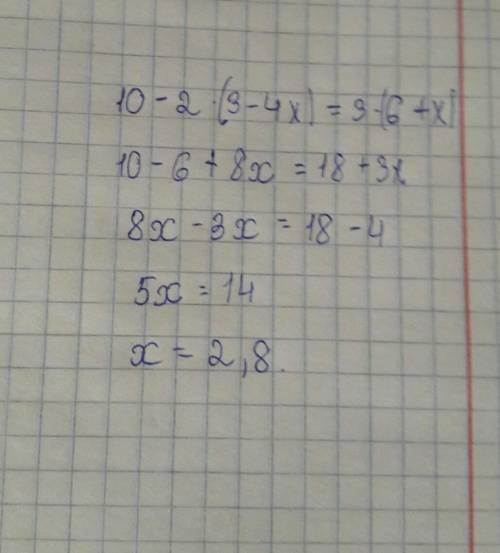 10 - 2 · (3 - 4x) = 3 · (6 + x)
10 - 6 + 8x = 18 + 3x
8x - 3x = 18 - 4
5x = 14
x = 2,8.